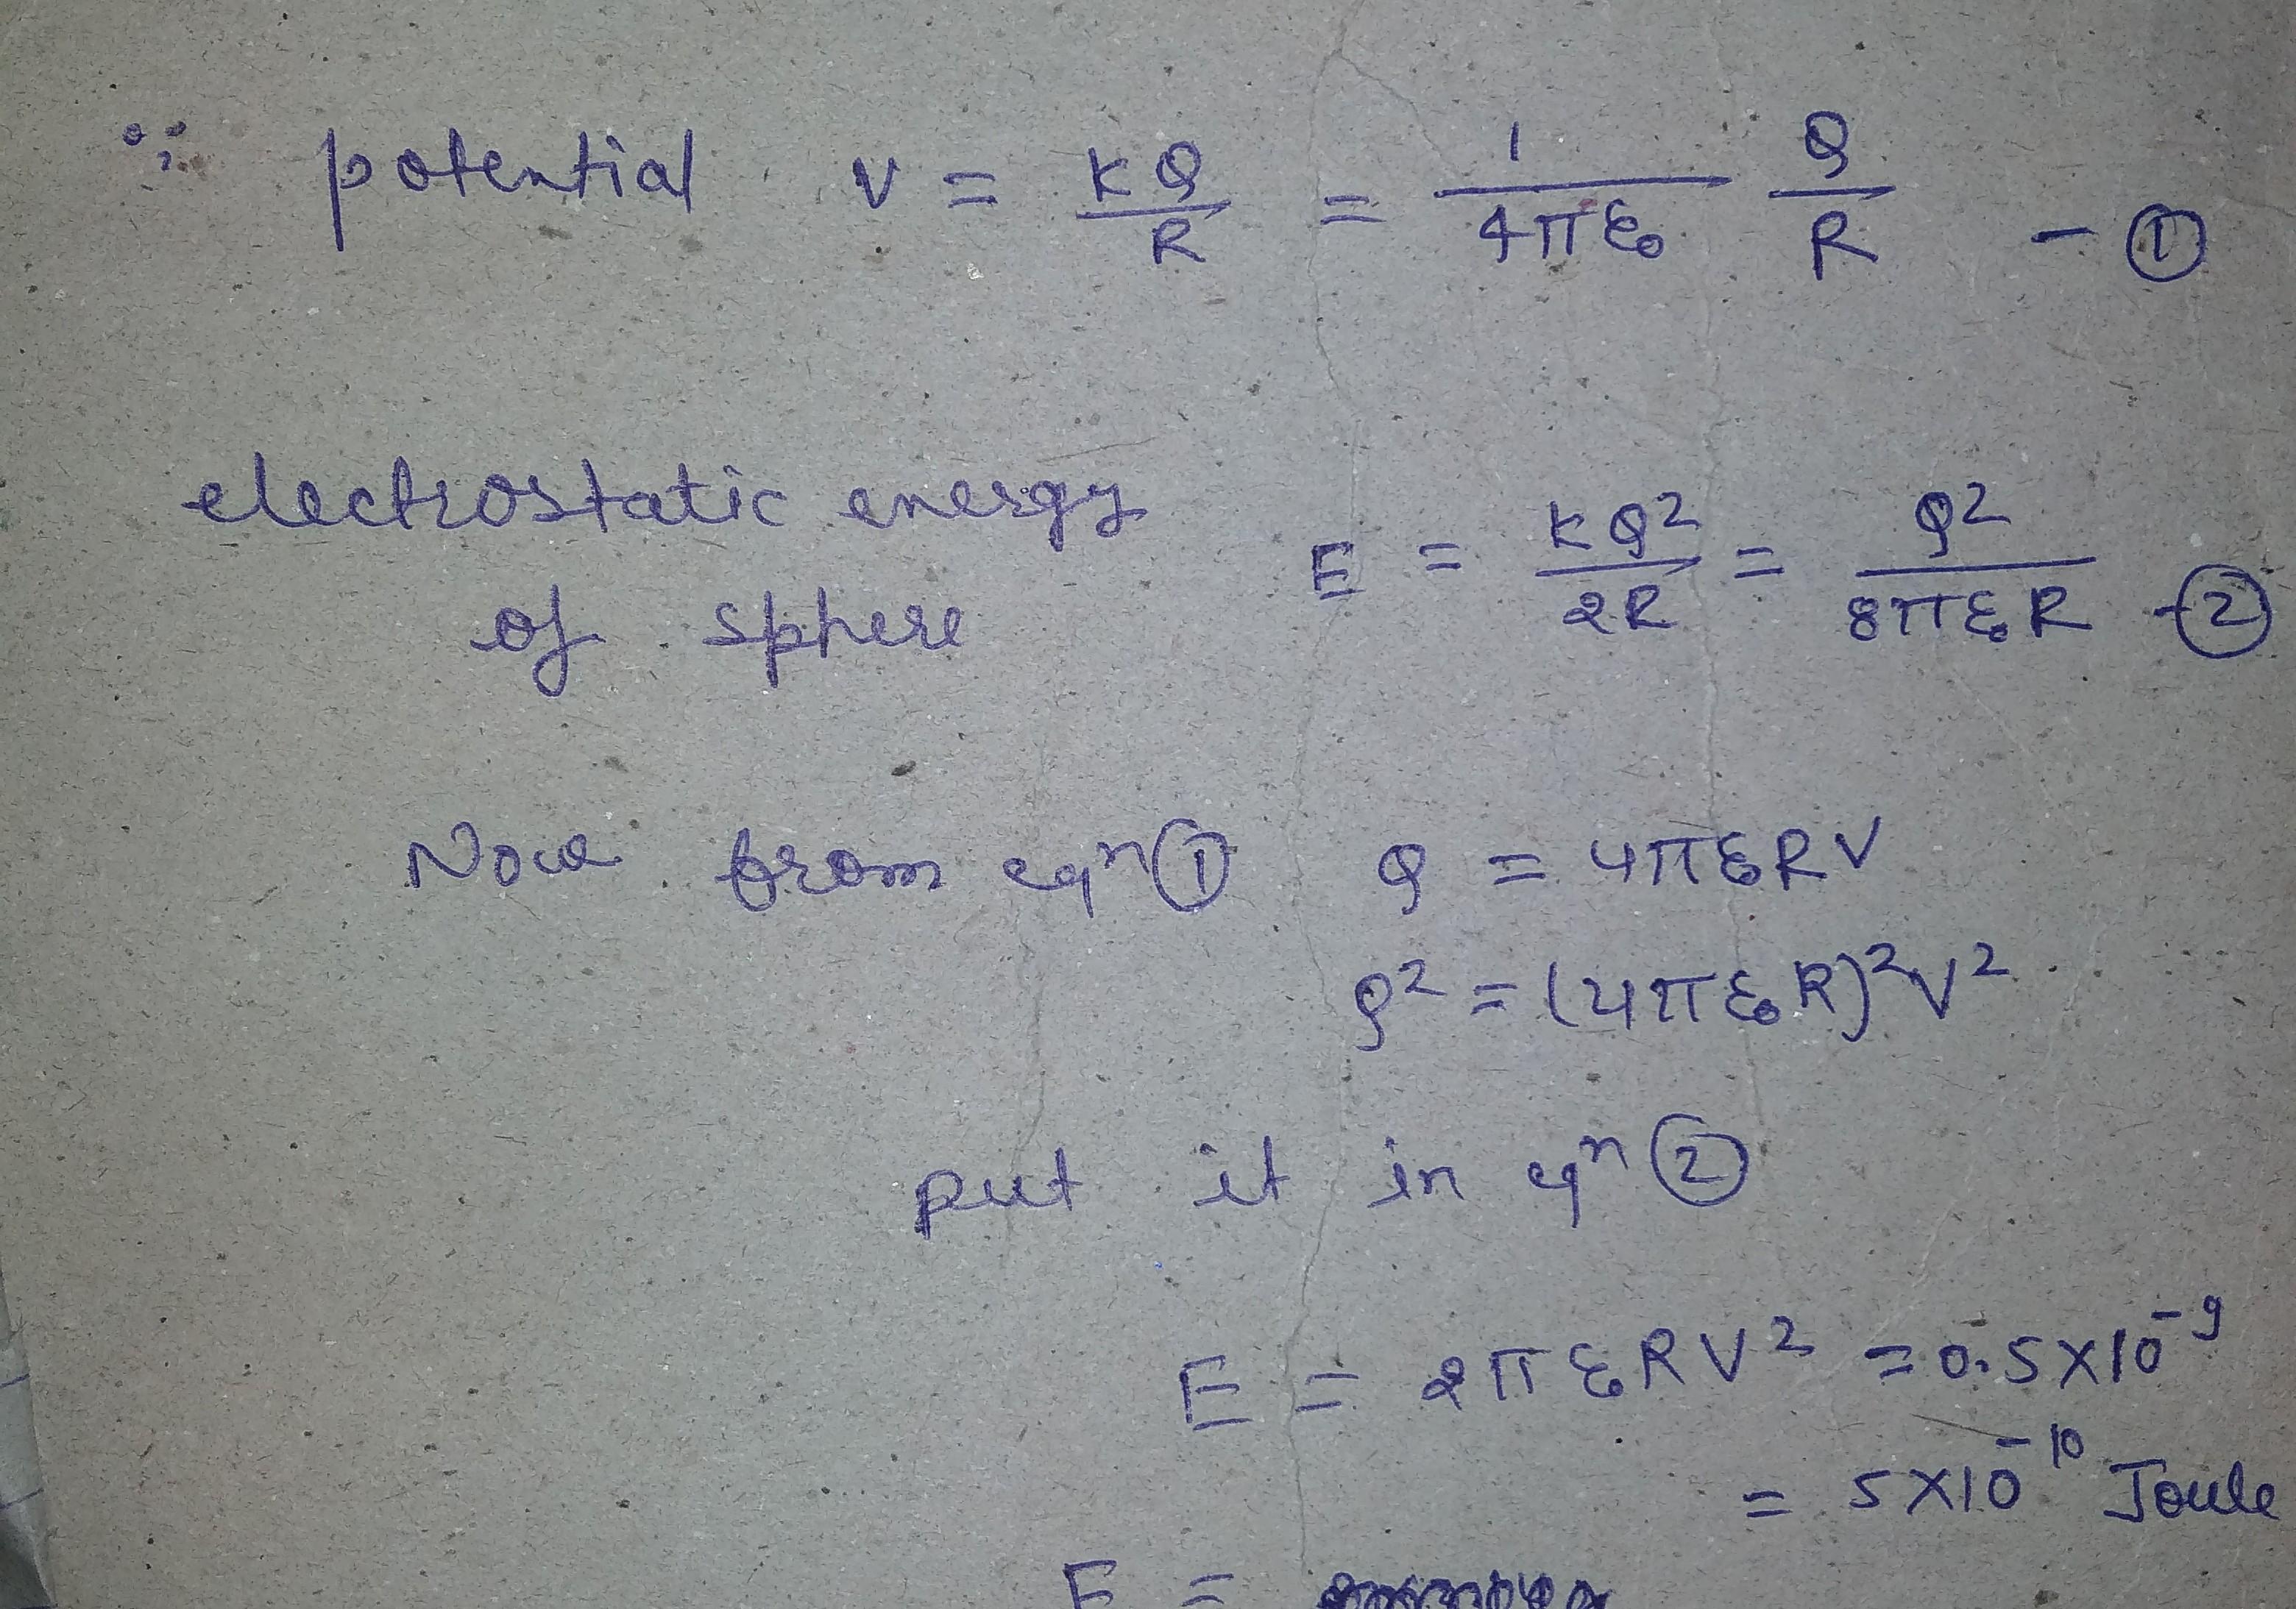 ∵ potential V = KQ/R = 1/4πε₀ Q/R - ①
electrostatic energy of sphere E = KQ²/2R = Q²/8πε₀R - ②
Now from eqⁿ ① Q = 4πε₀RV
Q² = (4πε₀R)²V²
put it in eqⁿ ②
E = 2πε₀RV² = 0.5×10⁻⁹
= 5×10⁻¹⁰ Joule
E =